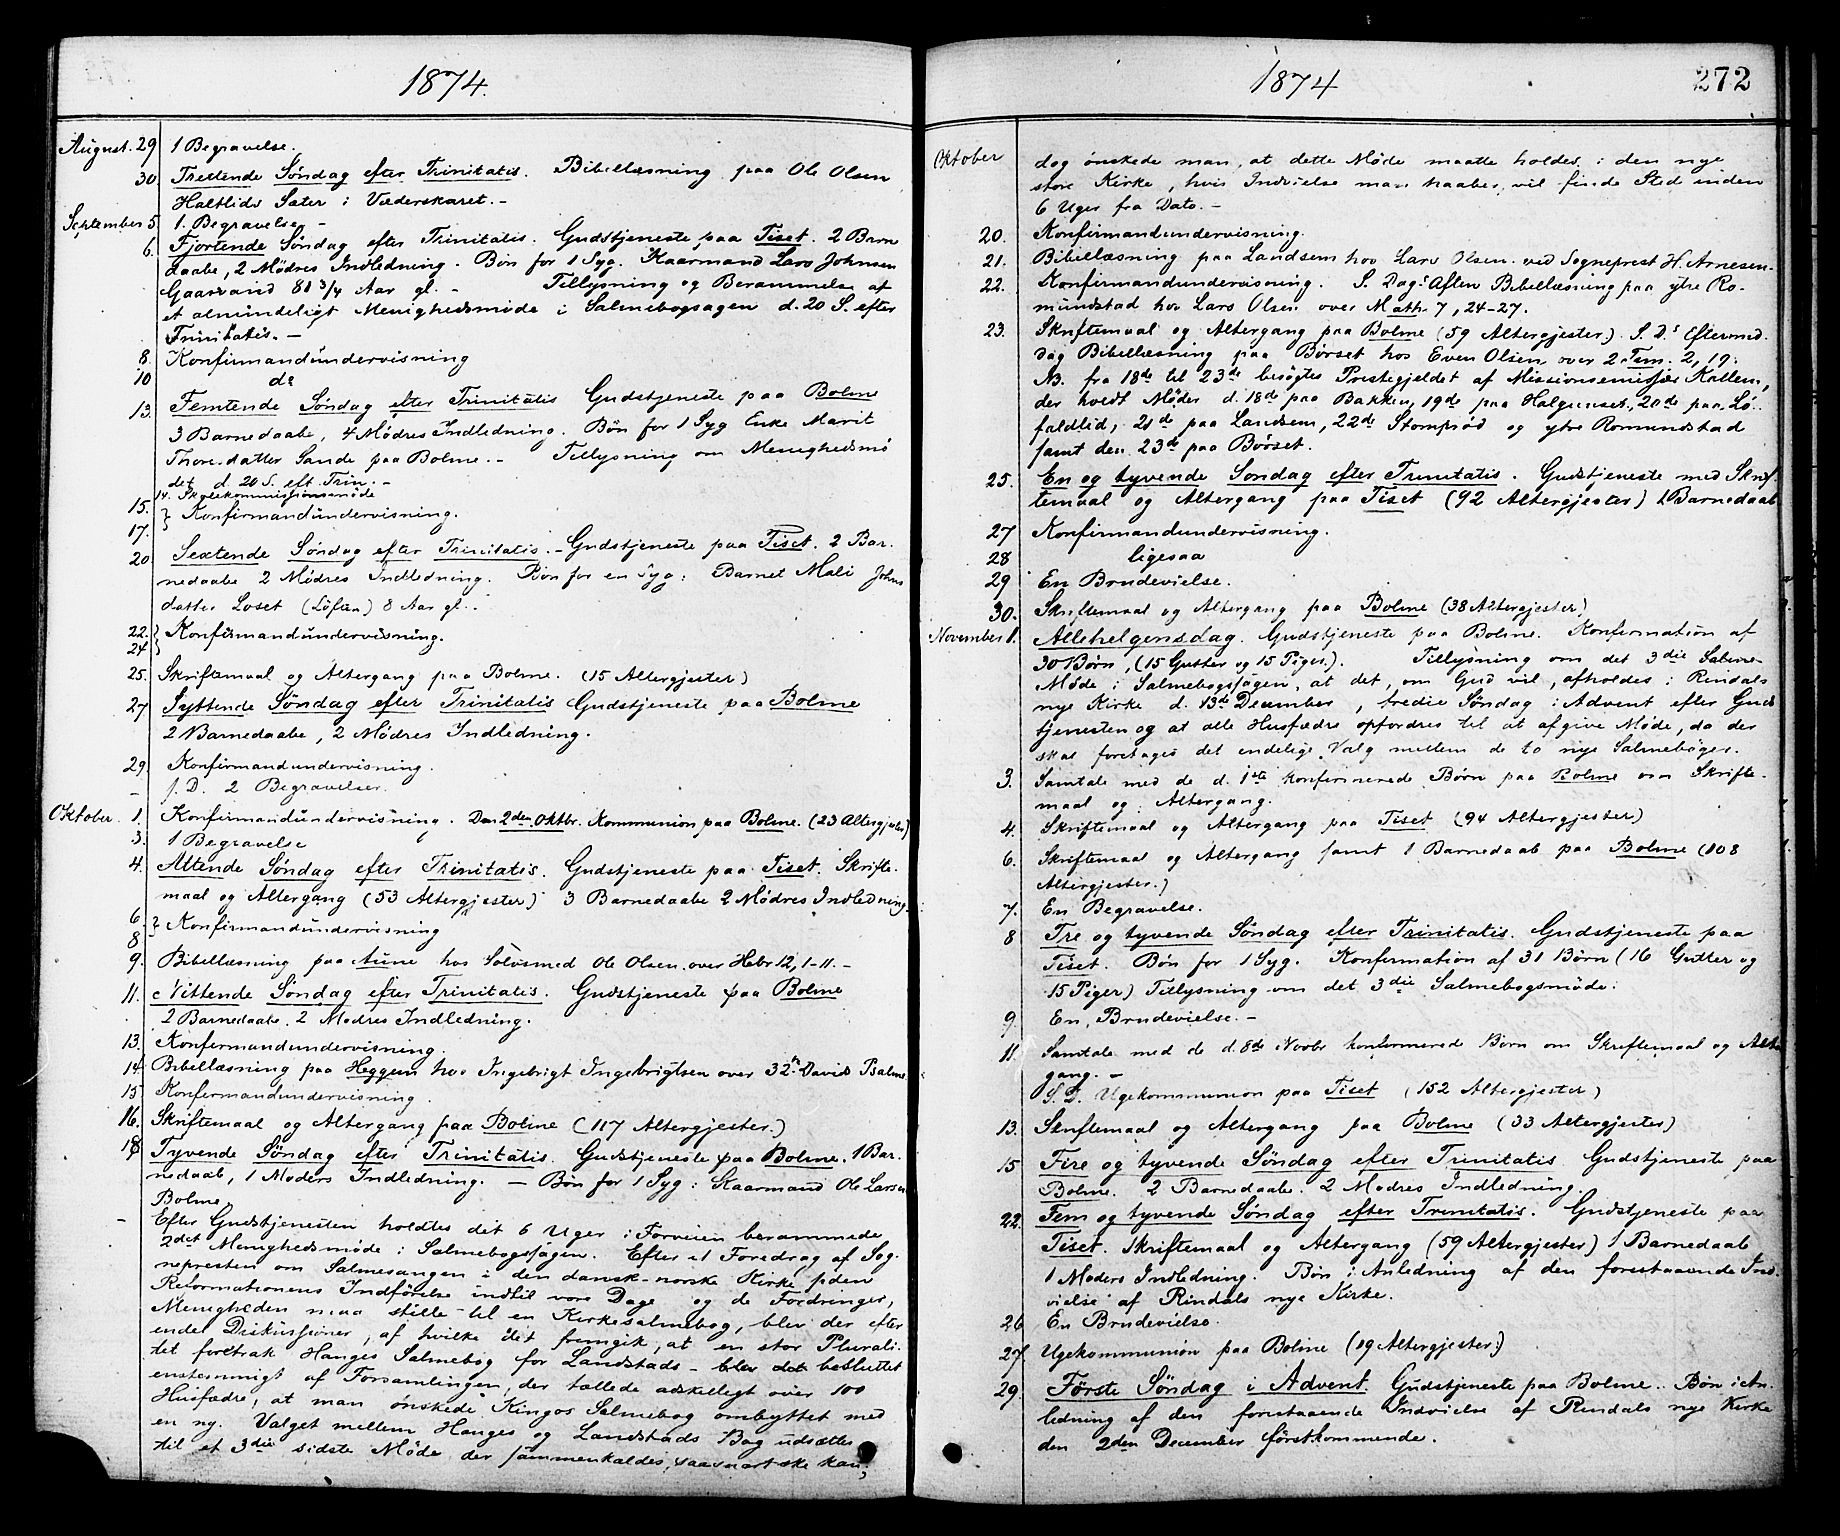 1874.
August. 29 1 Begravelse.
30. Trettende Søndag efter Trinitatis. Bibellæsning paa Ole Olsen
Haltlids Sæter i Væderskaret. –
September 5. 1. Begravelse –
6. Fjortende Søndag efter Trinitatis. Gudstjeneste paa Tiset. 2 Barne
daabe, 2 Mødres Indledning. Bøn for 1 Syg. Kaarmand Lars Johnsen
Gaasvand 81 3/4 Aar gl. – Tillysning og Berammelse af
et almindeligt Menighedsmøde i Salmebogsagen d. 20 S. efter
Trinitatis. –
8. Konfirmandundervisning
10 do
13. Femtende Søndag efter Trinitatis Gudstjeneste paa Bolme
3 Barnedaabe, 4 Mødres Indledning. Bøn for 1 Syg Enke Marit
Thoresdatter Sande paa Bolme. – Tillysning om Menighedsmø
det d. 20 S. eft. Trin. –
14. Skolekommissionsmøde
15. } Konfirmandundervisning.
17.
20 Sextende Søndag efter Trinitatis. – Gudstjeneste paa Tiset. 2 Bar-
nedaabe 2 Mødres Indledning. Bøn for en Syg: Barnet Mali Johns
datter Loset (Løften) 8 Aar gl.
22. } Konfirmandundervisning.
24
25. Skriftemaal og Altergang paa Bolme. (15 Altergjester)
27 Syttende Søndag efter Trinitatis Gudstjeneste paa Bolme
2 Barnedaabe, 2 Mødres Indledning.
29. Konfirmandundervisning.
– s. D. 2 Begravelser.
Oktober. 1. Konfirmandundervisning. Den 2den Oktbr. Kommunion paa Bolme. (23 Altergjester)
3. 1 Begravelse
4. Attende Søndag efter Trinitatis. Gudstjeneste paa Tiset. Skrifte-
maal og Altergang (53 Altergjester) 3 Barnedaabe 2 Mødres Indledning.
6. } Konfirmandundervisning
8
9. Bibellæsning paa Aune hos Selvsmed Ole Olsen over Hebr 12, 1-11. –
11. Nittende Søndag efter Trinitatis. Gudstjeneste paa Bolme
2 Barnedaabe. 2 Mødres Indledning.
13. Konfirmandundervisning.
14 Bibellæsning paa Heggem hos Ingebrigt Ingebrigtsen over 32te Davids Psalme.
15 Konfirmandundervisning.
16. Skriftemaal og Altergang paa Bolme (117 Altergjester.)
18 Tyvende Søndag efter Trinitatis. Gudstjeneste paa Bolme. 1 Bar-
nedaab, 1 Moders Indledning. – Bøn for 1 Syg: Kaarmand Ole Larsen
Bolme.
– Efter Gudstjenesten holdtes det 6 Uger i Forveien berammede
2det Menighedsmøde i Salmebogsagen. Efter et Foredrag af Sog-
nepresten om Salmesangen i den dansk-norske Kirke siden
Reformationens Indførelse indtil vore Dage og de Fordringer,
Menigheden maa stille til en Kirkesalmebog, blev der efter
endel Diskussioner, af hvilke det fremgik, at en stor Plurali-
tet foretrak Hauges Salmebog for Landstads – blev det besluttet
enstemmigt af Forsamlingen, der tællede adskilligt over 100
Husfædre, at man ønskede Kingos Salmebog ombyttet med
en ny. Valget mellem Hauges og Landstads Bog udsættes
til et 3die sidste Møde, der sammenkaldes saasnart ske kan;
1874 272
Oktober dog ønskede man, at dette Møde maatte holdes i den nye
store Kirke, hvis Indvielse man haaber vil finde Sted inden
6 Uger fra Dato. –
20. Konfirmandundervisning.
21. Bibellæsning paa Landsem hos Lars Olsen ved Sogneprest H. Arnesen.
22. Konfirmandundervisning. S. Dags Aften Bibellæsning paa ytre Ro-
mundstad hos Lars Olsen over Math. 7, 24-27.
23. Skriftemaal og Altergang paa Bolme (59 Altergjester). S. Ds Eftermid-
dag Bibellæsning paa Børset hos Even Olsen over 2 Tim. 2, 19.
NB. fra 18de til 23de besøgtes Prestegjeldet af Missionsemissær Kallem,
der holdt Møder d. 18de paa Bakken, 19de paa Halgunset, 20de paa Lø-
faldlid, 21de paa Landsem, 22de Stomprød og ytre Romundstad
samt den 23de paa Børset.
25. En og tyvende Søndag efter Trinitatis. Gudstjeneste med Skrif-
temaal og Altergang paa Tiset (92 Altergjester) 1 Barnedaab
27 Konfirmandundervisning.
28 ligesaa
29 En Brudevielse.
30. Skriftemaal og Altergang paa Bolme (38 Altergjester)
November 1. Allehelgensdag. Gudstjeneste paa Bolme. Konfirmation af
30 Børn, (15 Gutter og 15 Piger.). Tillysning om det 3die Salme-
Møde i Salmebogsagen, at det, om Gud vil, afholdes i Rindals
nye Kirke d. 13de December, tredie Søndag i Advent efter Guds
tjenesten og at alle Husfædre opfordres til at afgive Møde, da der
skal foretages det endelige Valg mellem de to nye Salmebøger.
3. Samtale med de d. 1ste konfirmerede Børn paa Bolme om Skrifte-
maal og Altergang.
4. Skriftemaal og Altergang paa Tiset (94 Altergjester)
6. Skriftemaal og Altergang samt 1 Barnedaab paa Bolme (108
Altergjester.)
7. En Begravelse.
8 Tre og tyvende Søndag efter Trinitatis. Gudstjeneste paa
Tiset. Bøn for 1 Syg. Konfirmation af 31 Børn (16 Gutter og
15 Piger) Tillysning om det 3die Salmebogsmøde.
9. En Brudevielse. –
11. Samtale med de d. 8de Novbr konfirmerede Børn om Skriftemaal og Alter
gang. –
S. D. Ugekommunion paa Tiset (152 Altergjester)
13. Skriftemaal og Altergang paa Bolme (33 Altergjester)
15 Fire og tyvende Søndag efter Trinitatis Gudstjeneste paa
Bolme. 2 Barnedaabe. 2 Mødres Indledning.
22. Fem og tyvende Søndag efter Trinitatis. Gudstjeneste paa
Tiset. Skriftemaal og Altergang (59 Altergjester) 1 Barnedaab
1 Moders Indledning. Bøn i Anledning af den forestaaende Ind-
vielse af Rindals nye Kirke.
26 En Brudevielse.
27. Ugekommunion paa Bolme (19 Altergjester.)
29. Første Søndag i Advent. Gudstjeneste paa Bolme. Bøn i An-
ledning af den forestaaende Indvielse af Rindals nye Kirke
den 2den December førstkommende.